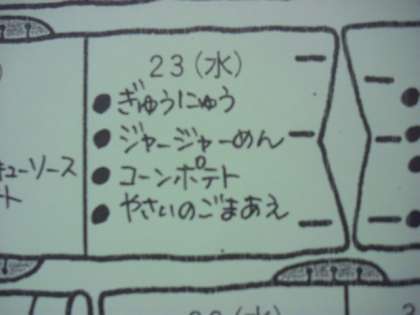 23(水)
●ぎゅうにゅう
●ジャージャーめん
●コーンポテト
●やさいのごまあえ
キューソース
ト